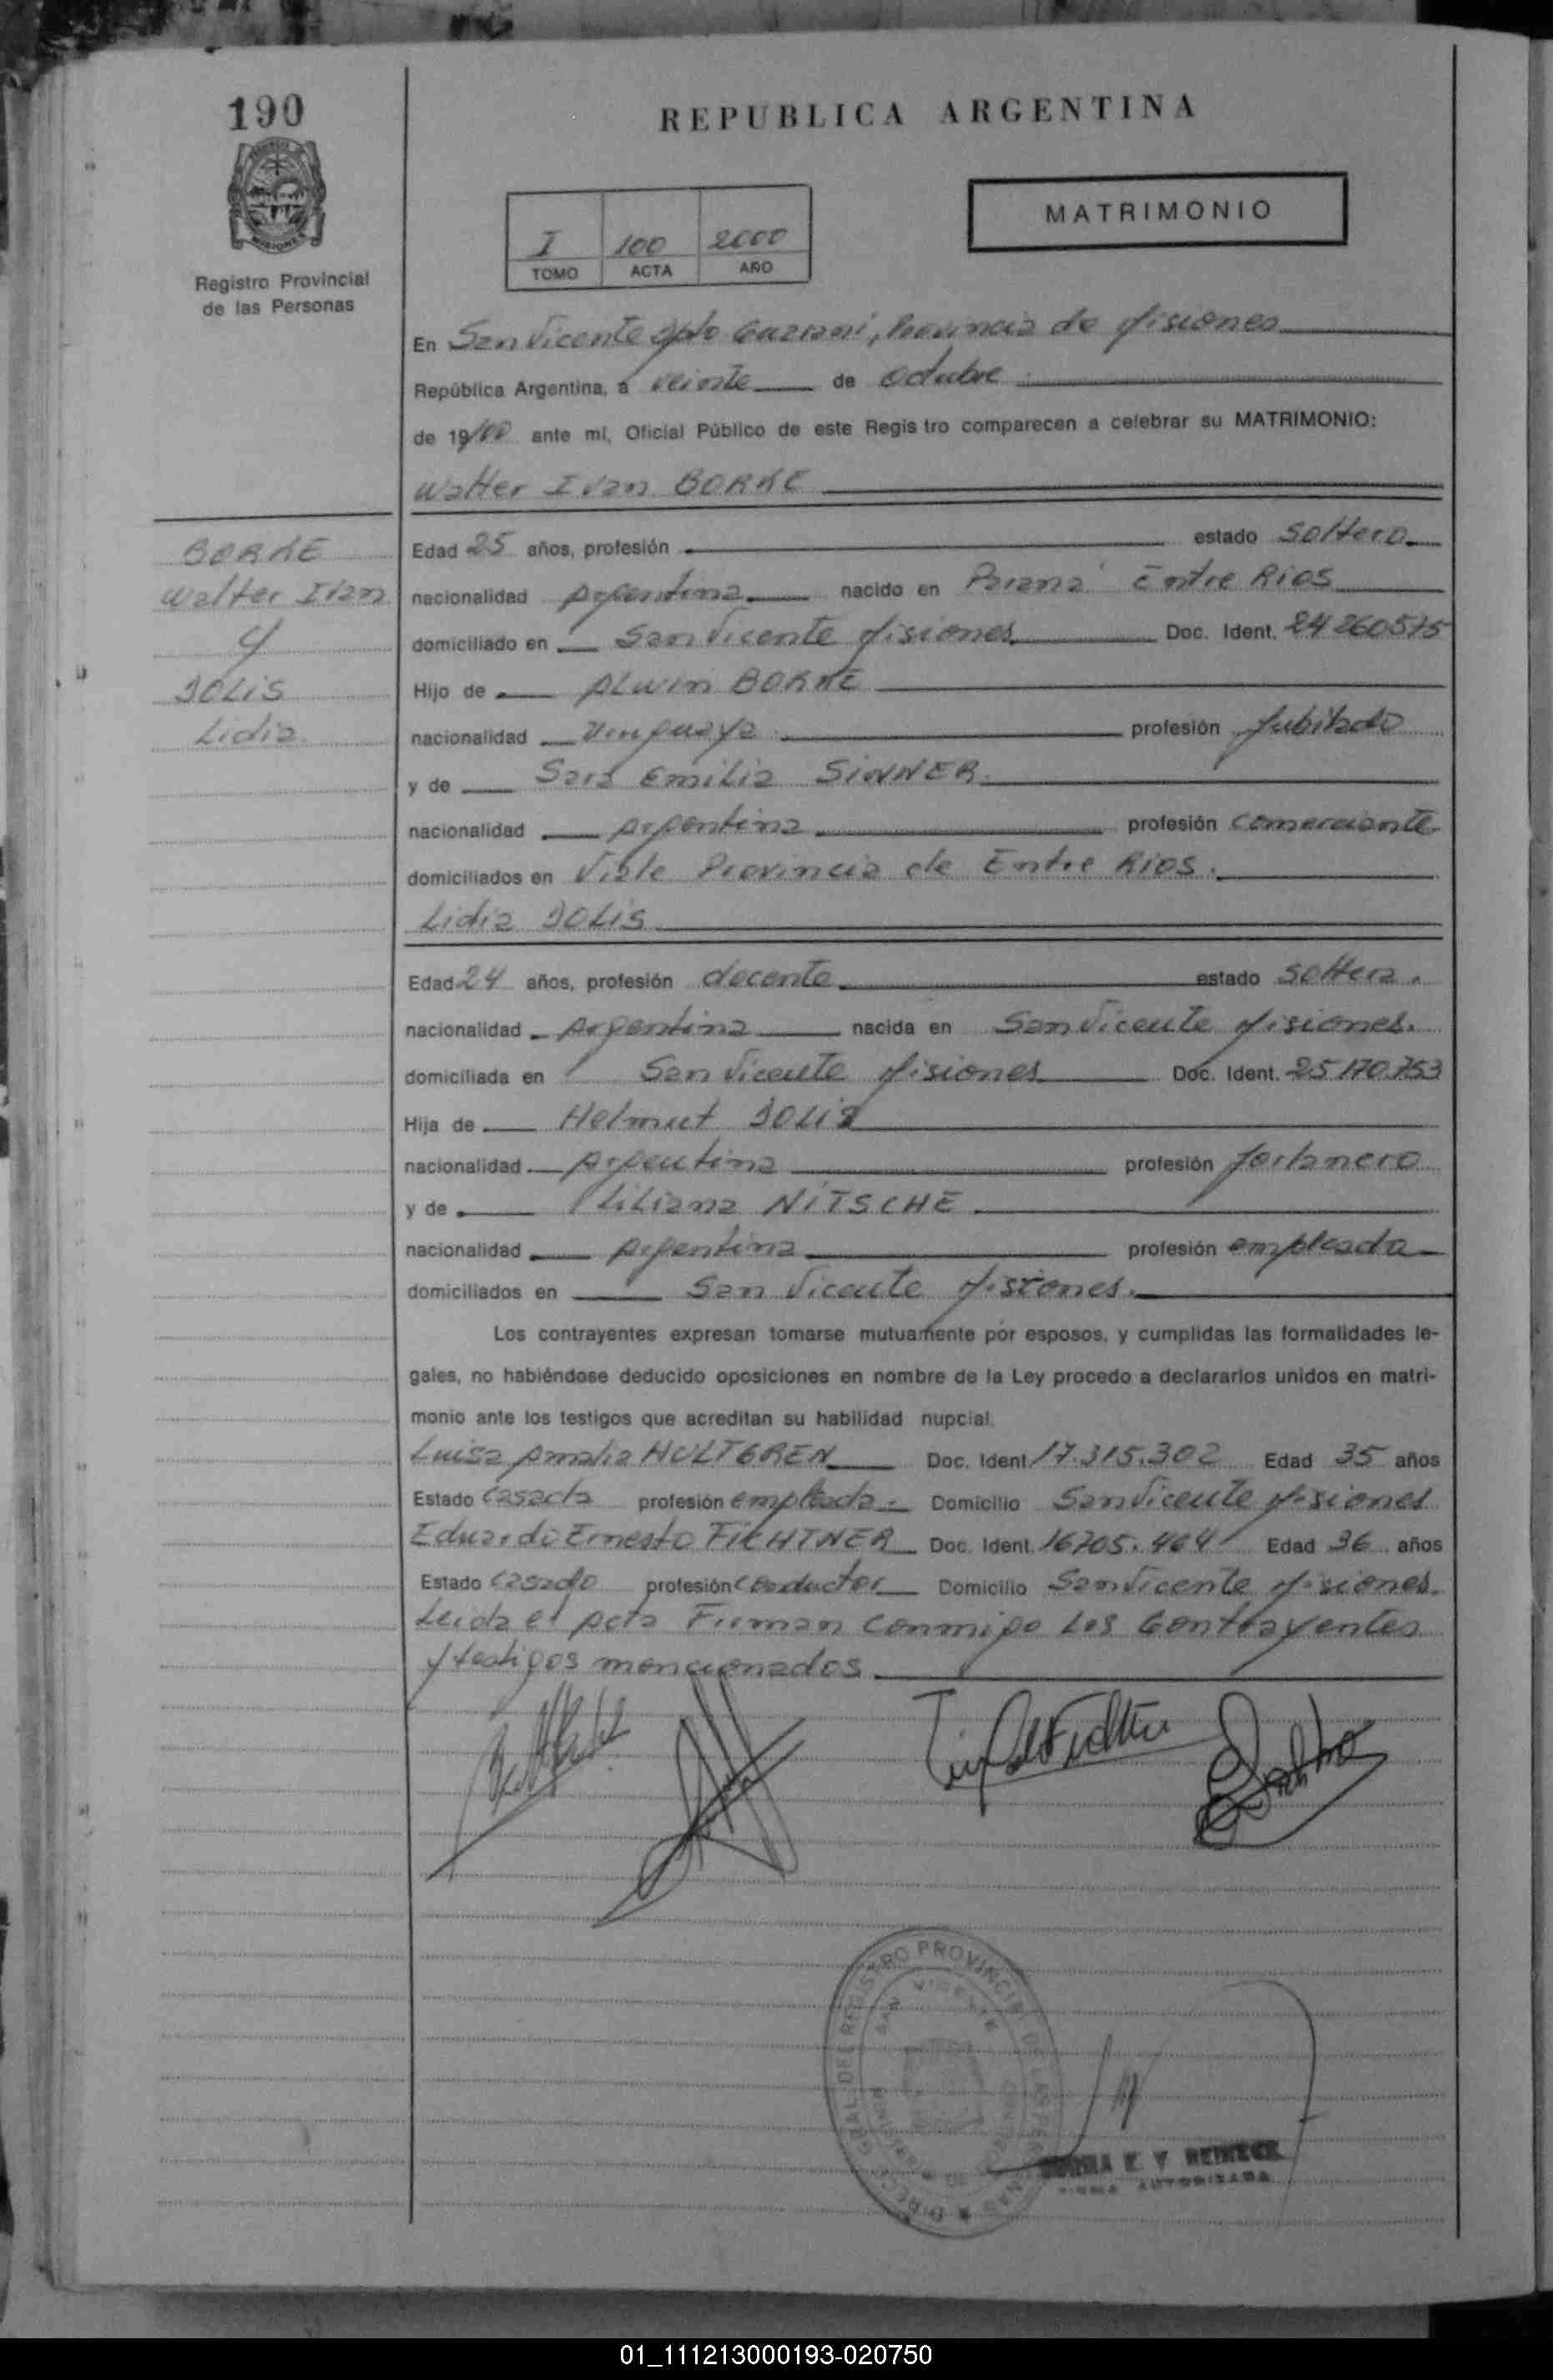 190
REPUBLICA ARGENTINA
MATRIMONIO
I 100 2000
TOMO ACTA AÑO
Registro Provincial
de las Personas
En San Vicente Dpto Guaraní, Provincia de Misiones
República Argentina, a veinte de Octubre
de 19 ante mí, Oficial Público de este Registro comparecen a celebrar su MATRIMONIO:
Walter Ivan BORKE
BORKE
Walter Ivan
y
DOLIS
Lidia
Edad 25 años, profesión estado Soltero
nacionalidad Argentina nacido en Paraná Entre Rios
domiciliado en San Vicente Misiones Doc. Ident. 24260575
Hijo de Alwin BORKE
nacionalidad Uruguaya profesión Jubilado
y de Sara Emilia SINNER
nacionalidad Argentina profesión Comerciante
domiciliados en Viale Provincia de Entre Rios.
Lidia DOLIS
Edad 24 años, profesión docente estado Soltera.
nacionalidad Argentina nacida en San Vicente Misiones.
domiciliada en San Vicente Misiones Doc. Ident. 25.170.753
Hija de Helmut DOLIS
nacionalidad Argentina profesión
y de Liliana NITSCHE
nacionalidad Argentina profesión empleada
domiciliados en San Vicente Misiones.
Los contrayentes expresan tomarse mutuamente por esposos, y cumplidas las formalidades le-
gales, no habiéndose deducido oposiciones en nombre de la Ley procedo a declararlos unidos en matri-
monio ante los testigos que acreditan su habilidad nupcial.
Luisa Amalia HULTGREN Doc. Ident. 17.315.302 Edad 35 años
Estado Casada profesión empleada Domicilio San Vicente Misiones
Eduardo Ernesto FICHTNER Doc. Ident. 16705.464 Edad 36 años
Estado Casado profesión Conductor Domicilio San Vicente Misiones.
Leida el Acta Firman conmigo los Contrayentes
y testigos mencionados
DIRECC. GRAL. DEL REGISTRO PROVINCIAL DE LAS PERSONAS
SAN VICENTE
FIRMA AUTORIZADA
01_111213000193-020750